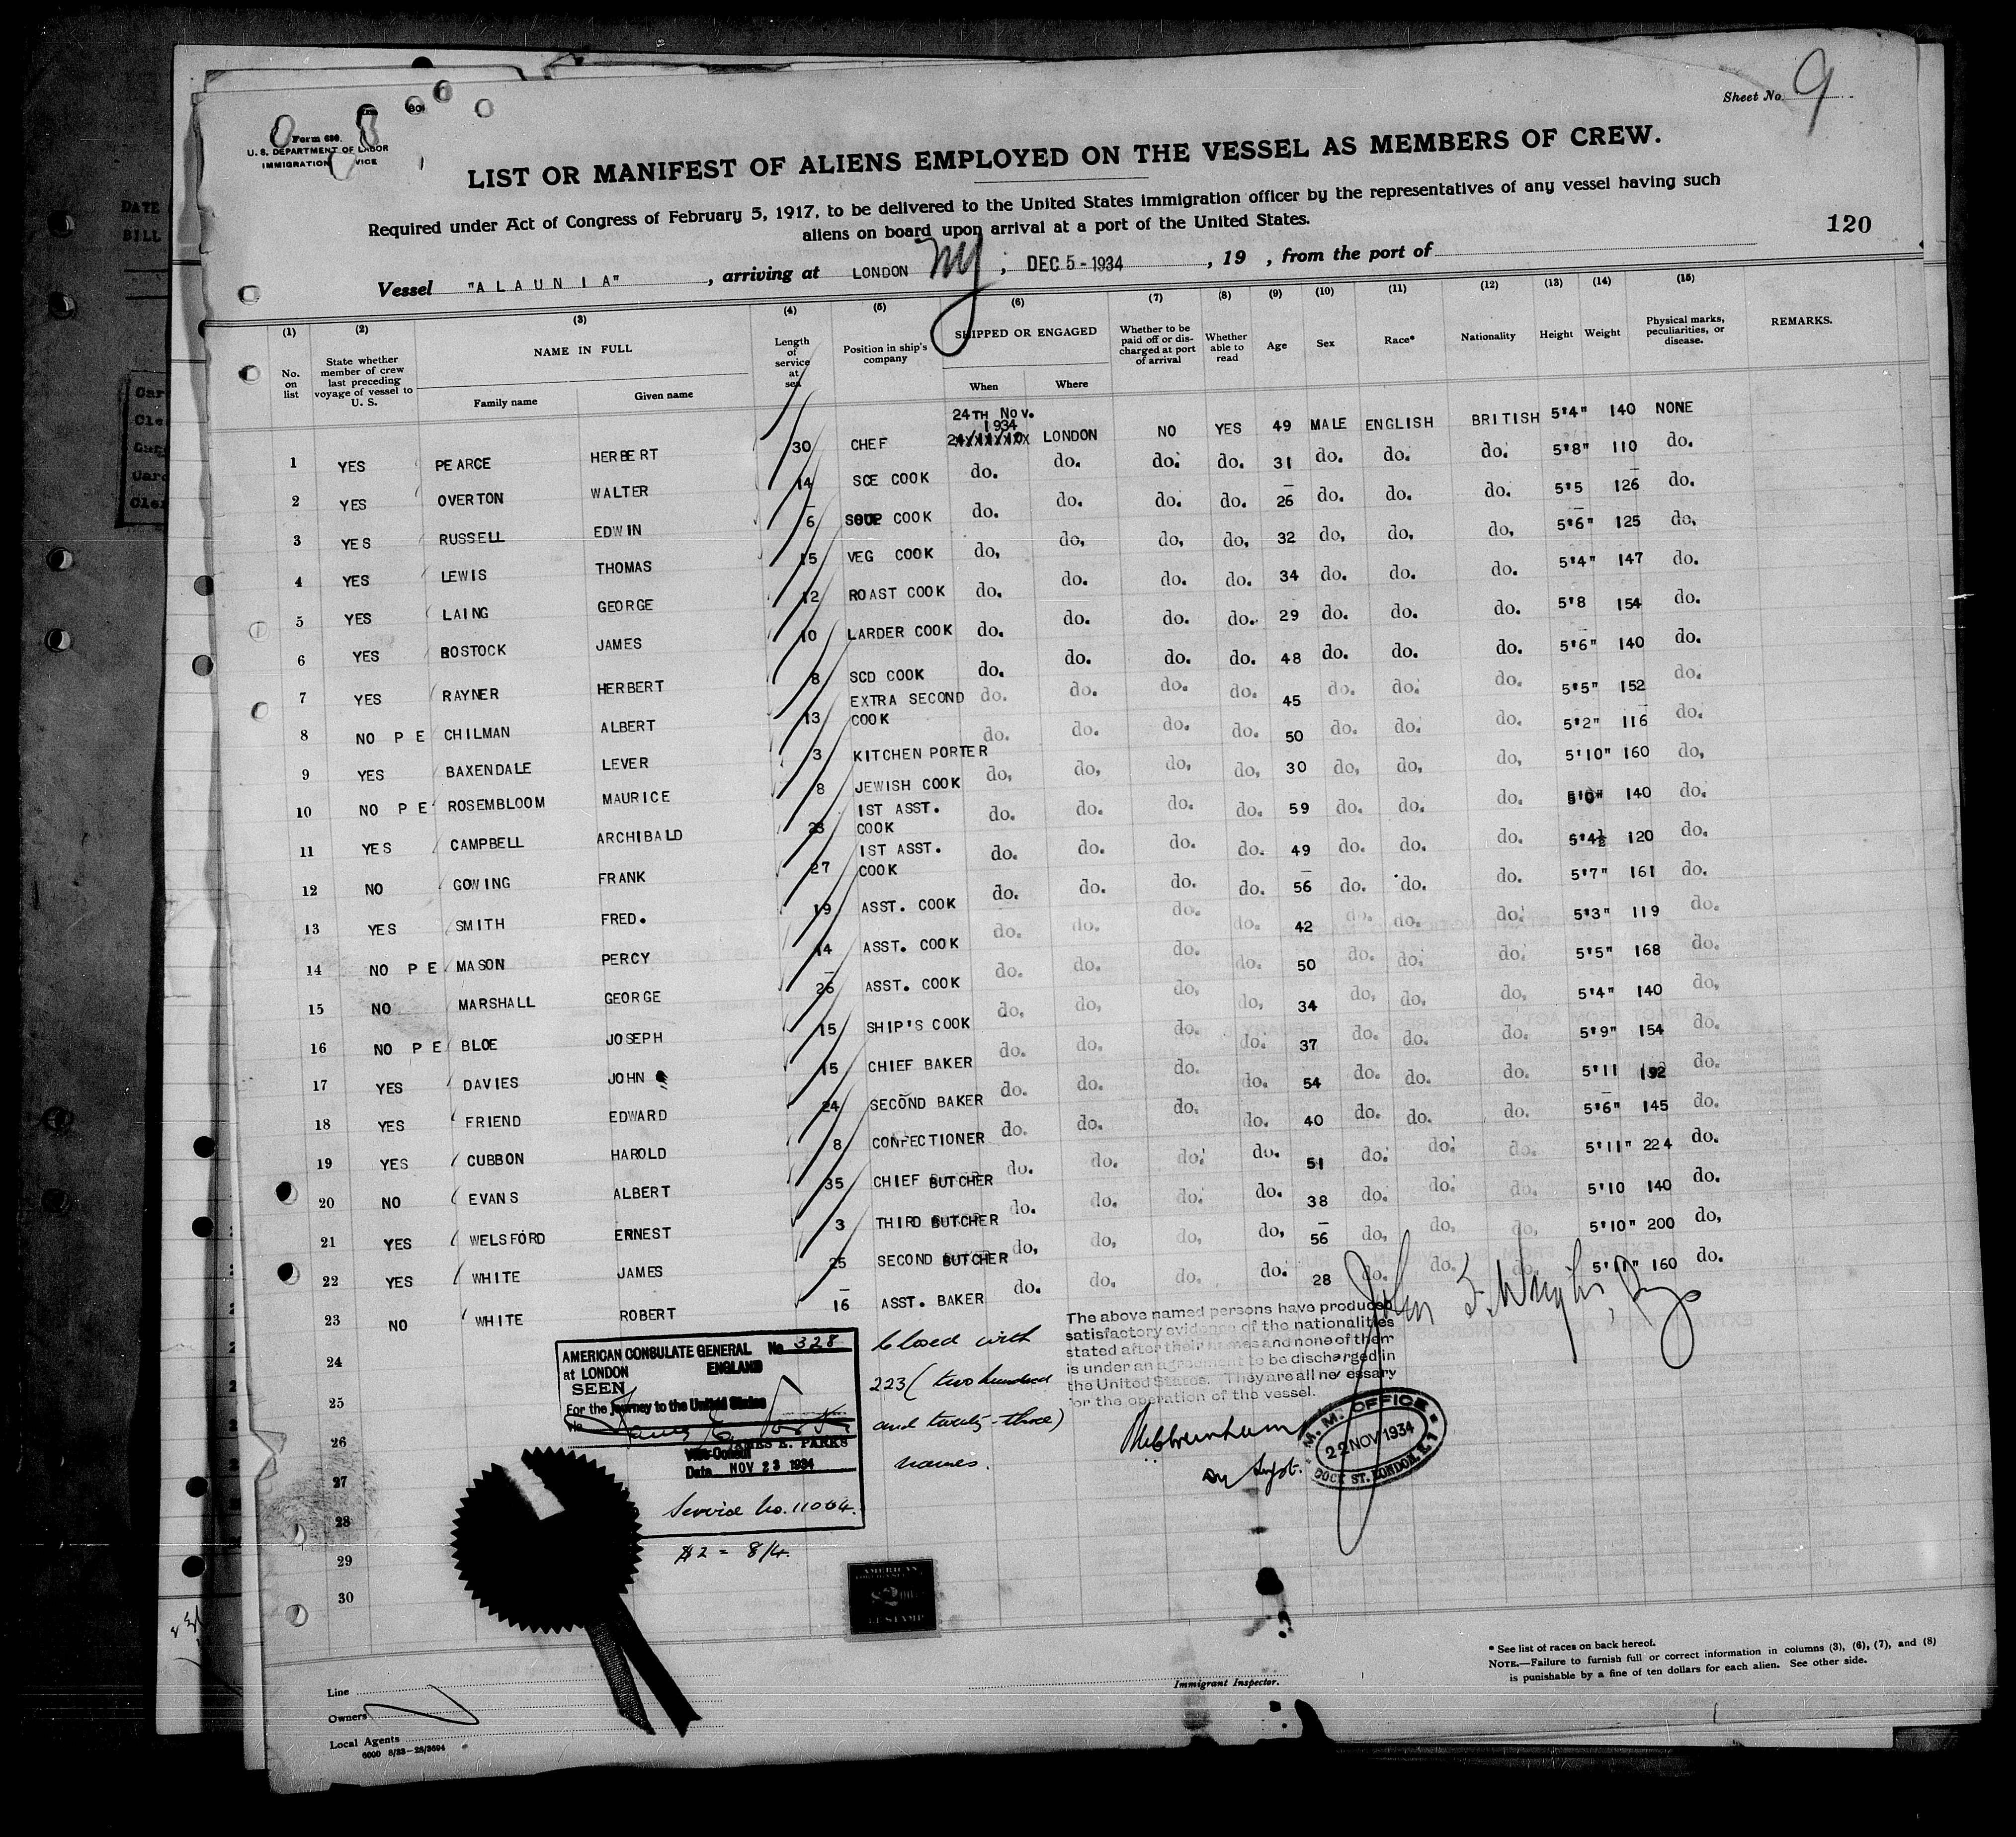 Sheet No. 9
Form 680.
U. S. DEPARTMENT OF LABOR
IMMIGRATION
LIST OR MANIFEST OF ALIENS EMPLOYED ON THE VESSEL AS MEMBERS OF CREW.
Required under Act of Congress of February 5, 1917, to be delivered to the United States immigration officer by the representatives of any vessel having such
aliens on board upon arrival at a port of the United States.
120
Vessel "ALAUNIA", arriving at LONDON NY, DEC 5 - 1934, 19 , from the port of
(1) (2) (3) (4) (5) (6) (7) (8) (9) (10) (11) (12) (13) (14) (15)
No. on list State whether member of crew last preceding voyage of vessel to U. S. NAME IN FULL Family name Given name Length of service at sea Position in ship's company SHIPPED OR ENGAGED When Where Whether to be paid off or discharged at port of arrival Whether able to read Age Sex Race* Nationality Height Weight Physical marks, peculiarities, or disease. REMARKS.
1 YES PEARCE HERBERT 30 CHEF 24TH NOV. 1934 LONDON NO YES 49 MALE ENGLISH BRITISH 5'4" 140 NONE
2 YES OVERTON WALTER 14 SCE COOK do. do. do. do. 31 do. do. do. 5'8" 110 do.
3 YES RUSSELL EDWIN 6 SOUP COOK do. do. do. do. 26 do. do. do. 5'5 126 do.
4 YES LEWIS THOMAS 15 VEG COOK do. do. do. do. 32 do. do. do. 5'6" 125 do.
5 YES LAING GEORGE 12 ROAST COOK do. do. do. do. 34 do. do. do. 5'4" 147 do.
6 YES ROSTOCK JAMES 10 LARDER COOK do. do. do. do. 29 do. do. do. 5'8 154 do.
7 YES RAYNER HERBERT 8 SCD COOK do. do. do. do. 48 do. do. do. 5'6" 140 do.
8 NO P E CHILMAN ALBERT 13 EXTRA SECOND COOK do. do. do. do. 45 do. do. do. 5'5" 152 do.
9 YES BAXENDALE LEVER 3 KITCHEN PORTER do. do. do. do. 50 do. do. do. 5'2" 116 do.
10 NO P E ROSEMBLOOM MAURICE 8 JEWISH COOK do. do. do. do. 30 do. do. do. 5'10" 160 do.
11 YES CAMPBELL ARCHIBALD 23 1ST ASST. COOK do. do. do. do. 59 do. do. do. 5'0" 140 do.
12 NO GOWING FRANK 27 1ST ASST. COOK do. do. do. do. 49 do. do. do. 5'4½ 120 do.
13 YES SMITH FRED. 19 ASST. COOK do. do. do. do. 56 do. do. do. 5'7" 161 do.
14 NO P E MASON PERCY 14 ASST. COOK do. do. do. do. 42 do. do. do. 5'3" 119 do.
15 NO MARSHALL GEORGE 26 ASST. COOK do. do. do. do. 50 do. do. do. 5'5" 168 do.
16 NO P E BLOE JOSEPH 15 SHIP'S COOK do. do. do. do. 34 do. do. do. 5'4" 140 do.
17 YES DAVIES JOHN 15 CHIEF BAKER do. do. do. do. 37 do. do. do. 5'9" 154 do.
18 YES FRIEND EDWARD 24 SECOND BAKER do. do. do. do. 54 do. do. do. 5'11 192 do.
19 YES CUBBON HAROLD 8 CONFECTIONER do. do. do. do. 40 do. do. do. 5'6" 145 do.
20 NO EVANS ALBERT 35 CHIEF BUTCHER do. do. do. do. 51 do. do. do. 5'11" 224 do.
21 YES WELSFORD ERNEST 3 THIRD BUTCHER do. do. do. do. 38 do. do. do. 5'10 140 do.
22 YES WHITE JAMES 25 SECOND BUTCHER do. do. do. do. 56 do. do. do. 5'10" 200 do.
23 NO WHITE ROBERT 16 ASST. BAKER do. do. do. do. 28 do. do. do. 5'11" 160 do.
24
25
26
27
28
29
30
AMERICAN CONSULATE GENERAL No 328
at LONDON ENGLAND
SEEN
For the journey to the United States
JAMES E. PARKS
Vice-Consul
Date NOV 23 1934
Service No. 11064.
$2 = 8/4.
Closed with
223 (two hundred
and twenty-three)
names.
The above named persons have produced
satisfactory evidence of the nationalities
stated after their names and none of them
is under an agreement to be discharged in
the United States. They are all necessary
for the operation of the vessel.
M. M. OFFICE
22 NOV 1934
DOCK ST. LONDON, E.1
AMERICAN
$2.00
Line
Owners
Local Agents
6000 8/33—28/3694
Immigrant Inspector.
* See list of races on back hereof.
NOTE.—Failure to furnish full or correct information in columns (3), (6), (7), and (8)
is punishable by a fine of ten dollars for each alien. See other side.